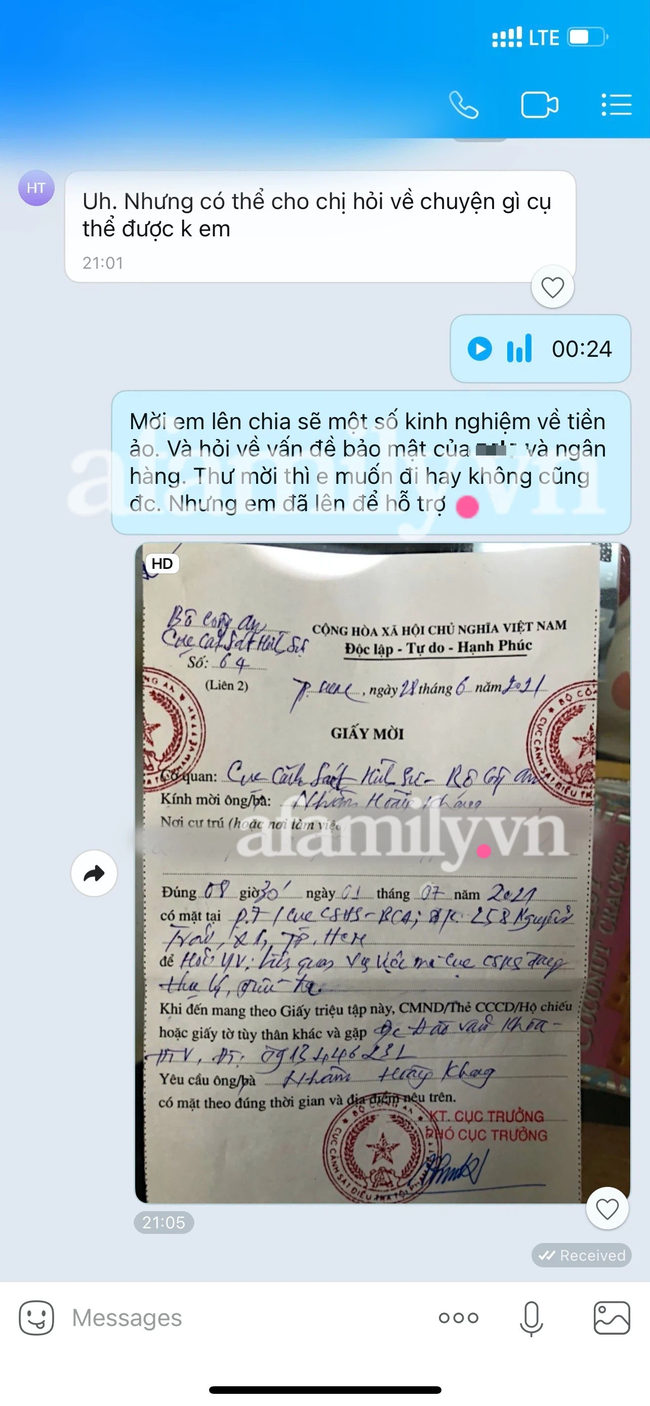 LTE
HT
Uh. Nhưng có thể cho chị hỏi về chuyện gì cụ
thể được k em
21:01
00:24
Mời em lên chia sẽ một số kinh nghiệm về tiền
ảo. Và hỏi về vấn đề bảo mật của và ngân
hàng. Thư mời thì e muốn đi hay không cũng
đc. Nhưng em đã lên để hỗ trợ
afamily.vn
HD
Bộ Công an
Cục Cảnh Sát Hình Sự
CỘNG HÒA XÃ HỘI CHỦ NGHĨA VIỆT NAM
Độc lập - Tự do - Hạnh Phúc
Số: 64
(Liên 2)
, ngày 28 tháng 6 năm 2021
GIẤY MỜI
Cơ quan: Cục Cảnh Sát Hình Sự - Bộ Công an
Kính mời ông/bà: Nhâm Hoàng Khang
Nơi cư trú (hoặc nơi làm việc
afamily.vn
Đúng 08 giờ 30' ngày 01 tháng 07 năm 2021
có mặt tại P.7 / Cục CSHS - BCA; đ/c: 258 Nguyễn
Trãi, Q1, TP. HCM
để vụ việc mà Cục CSHS đang
thụ lý, giải
Khi đến mang theo Giấy triệu tập này, CMND/Thẻ CCCD/Hộ chiếu
hoặc giấy tờ tùy thân khác và gặp Đ/c Đào Văn Khoa -
ĐTV, ĐT: 0913446231
Yêu cầu ông/bà Nhâm Hoàng Khang
có mặt theo đúng thời gian và địa điểm nêu trên.
KT. CỤC TRƯỞNG
PHÓ CỤC TRƯỞNG
COCONUT CRACKER
21:05
Received
Messages